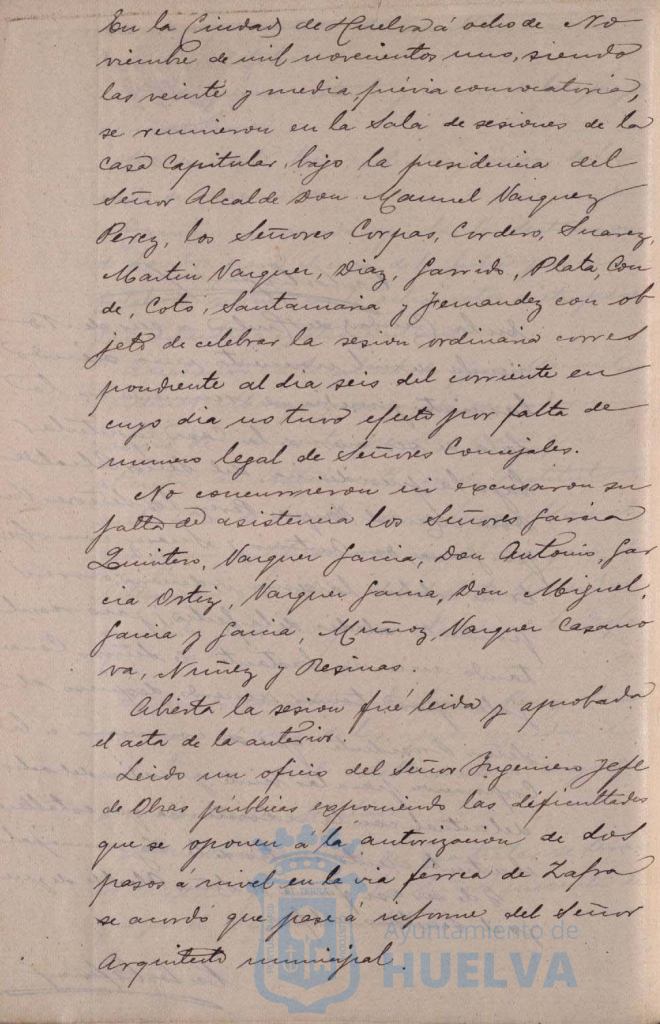 En la Ciudad de Huelva á ocho de No
viembre de mil novecientos uno, siendo
las veinte y media, prévia convocatoria,
se reunieron en la Sala de sesiones de la
Casa Capitular, bajo la presidencia del
Señor Alcalde Don Manuel Vazquez
Perez, los Señores Corpas, Cordero, Suarez,
Martin Vazquez, Diaz, Garrido, Plata, Con
de, Cotó, Santamaria y Fernandez con ob
jeto de celebrar la sesion ordinaria corres
pondiente al dia seis del corriente en
cuyo dia no tuvo efecto por falta de
número legal de Señores Concejales.
No concurrieron ni excusaron su
falta de asistencia los Señores Garcia
Quintero, Vazquez Garcia, Don Antonio, Gar
cia Ortiz, Vazquez Garcia, Don Miguel,
Garcia y Garcia, Muñoz, Vazquez Casano
va, Nuñez y Resinas.
Abierta la sesion fué leida y aprobada
el acta de la anterior.
Leido un oficio del Señor Ingeniero Jefe
de Obras públicas exponiendo las dificultades
que se oponen á la autorizacion de dos
pasos á nivel en la via férrea de Zafra
se acordó que pase á informe del Señor
Arquitecto municipal.
Ayuntamiento de
HUELVA